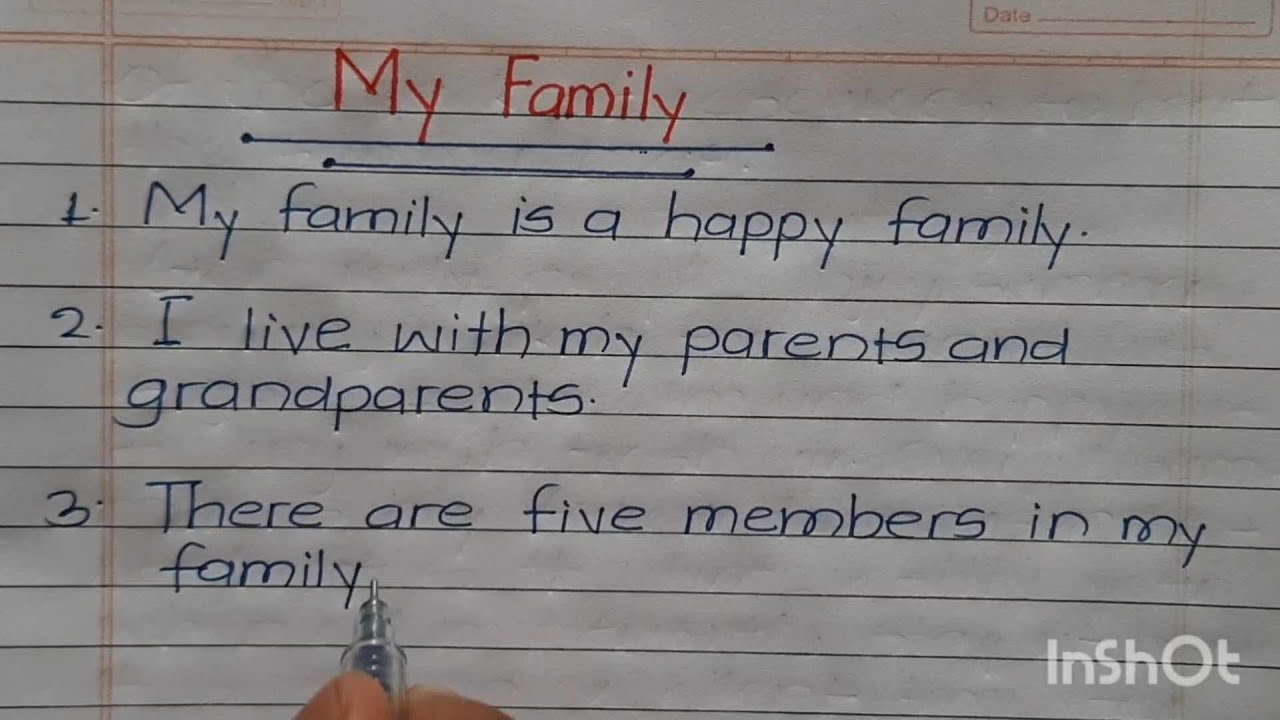 Date
My Family
1. My family is a happy family.
2. I live with my parents and
grandparents.
3. There are five members in my
family
InShOt